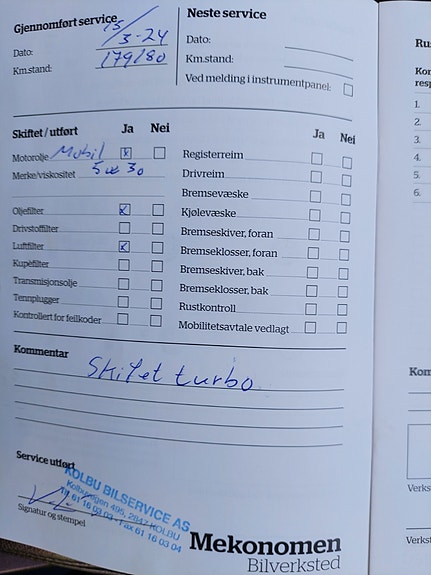 Gjennomført service
Dato: 15/3-24
Km.stand: 179180
Neste service
Dato:
Km.stand:
Ved melding i instrumentpanel:
Skiftet / utført Ja Nei
Motorolje Mobil x
Merke/viskositet 5w30
Oljefilter x
Drivstoffilter
Luftfilter x
Kupéfilter
Transmisjonsolje
Tennplugger
Kontrollert for feilkoder
Ja Nei
Registerreim
Drivreim
Bremsevæske
Kjølevæske
Bremseskiver, foran
Bremseklosser, foran
Bremseskiver, bak
Bremseklosser, bak
Rustkontroll
Mobilitetsavtale vedlagt
Kommentar
Skiftet turbo
Service utført
KOLBU BILSERVICE AS
Kolbuvegen 495, 2847 KOLBU
Tlf 61 16 03 03 - Fax 61 16 03 04
Signatur og stempel
Mekonomen
Bilverksted
Ru
Kon
resp
1.
2.
3.
4.
5.
6.
Kom
Verks
Verkst